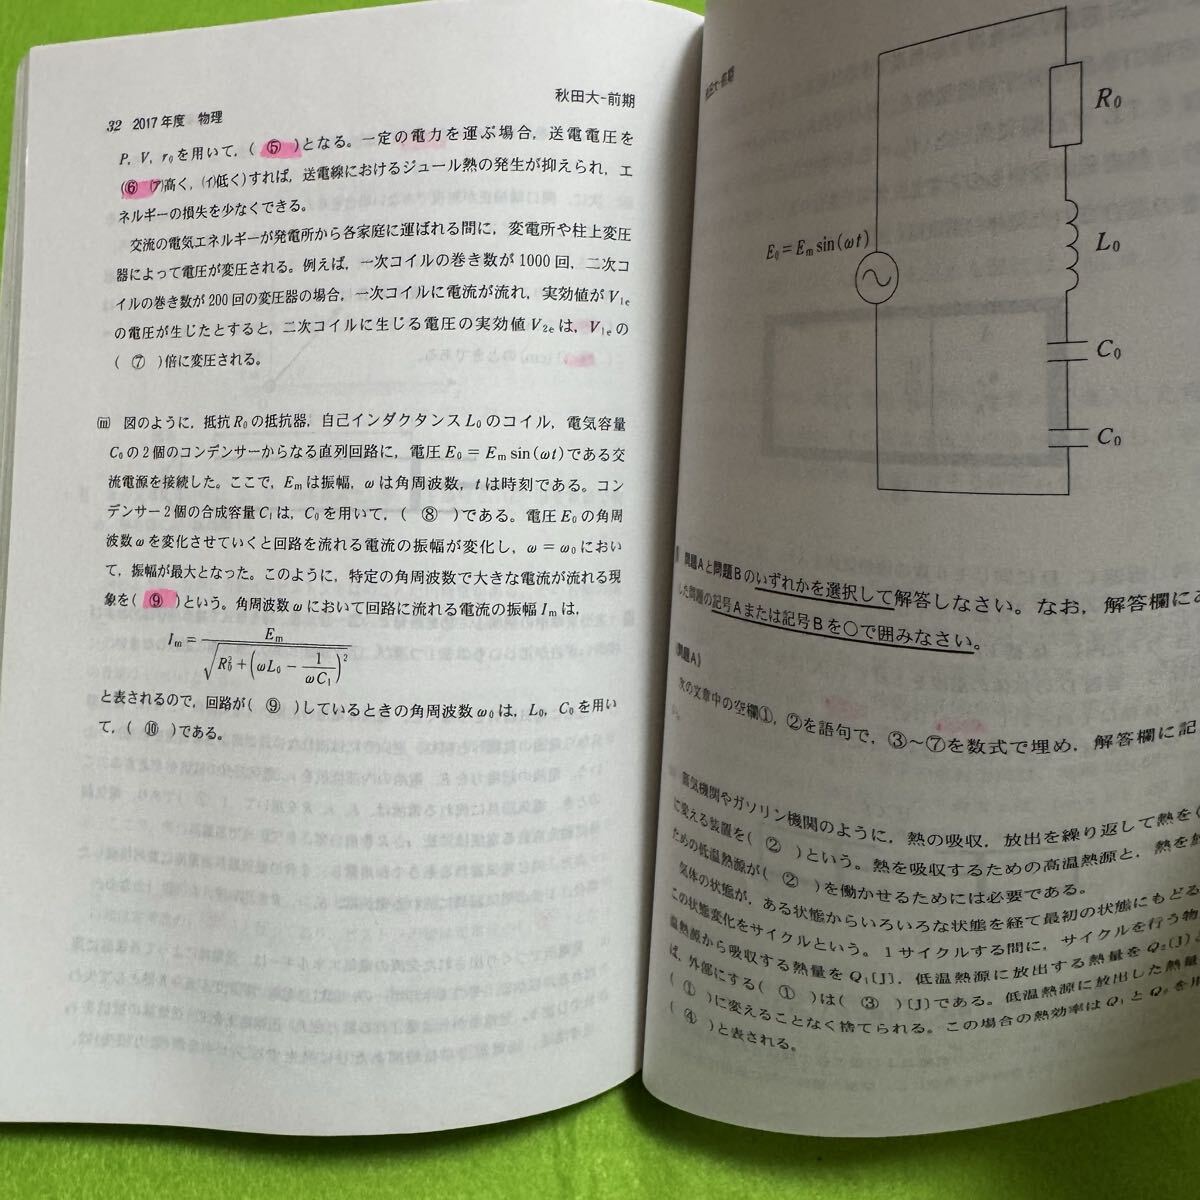 秋田大-前期
32 2017年度 物理
P, V, r₀を用いて,( ⑤ )となる。一定の電力を運ぶ場合, 送電電圧を
(⑥ (ア)高く, (イ)低く)すれば, 送電線におけるジュール熱の発生が抑えられ, エ
ネルギーの損失を少なくできる。
交流の電気エネルギーが発電所から各家庭に運ばれる間に, 変電所や柱上変圧
器によって電圧が変圧される。例えば, 一次コイルの巻き数が1000回, 二次コ
イルの巻き数が200回の変圧器の場合, 一次コイルに電流が流れ, 実効値がV₁ₑ
の電圧が生じたとすると, 二次コイルに生じる電圧の実効値V₂ₑは, V₁ₑの
( ⑦ )倍に変圧される。
(iii) 図のように, 抵抗R₀の抵抗器, 自己インダクタンスL₀のコイル, 電気容量
C₀の2個のコンデンサーからなる直列回路に, 電圧E₀ = Eₘ sin(ωt)である交
流電源を接続した。ここで, Eₘは振幅, ωは角周波数, tは時刻である。コン
デンサー2個の合成容量C₁は, C₀を用いて,( ⑧ )である。電圧E₀の角周
波数ωを変化させていくと回路を流れる電流の振幅が変化し, ω = ω₀におい
て, 振幅が最大となった。このように, 特定の角周波数で大きな電流が流れる現
象を( ⑨ )という。角周波数ωにおいて回路に流れる電流の振幅Iₘは,
Iₘ = Eₘ / √(R₀² + (ωL₀ − 1/(ωC₁))²)
と表されるので, 回路が( ⑨ )しているときの角周波数ω₀は, L₀, C₀を用い
て,( ⑩ )である。
秋田大-前期
R₀
L₀
E₀ = Eₘ sin(ωt)
C₀
C₀
問題Aと問題Bのいずれかを選択して解答しなさい。なお, 解答欄に
した問題の記号Aまたは記号Bを○で囲みなさい。
(問題A)
次の文章中の空欄①, ②を語句で, ③～⑦を数式で埋め, 解答欄に記
蒸気機関やガソリン機関のように, 熱の吸収, 放出を繰り返して熱を(
に変える装置を( ② )という。熱を吸収するための高温熱源と, 熱を
ための低温熱源が( ② )を働かせるためには必要である。
気体の状態が, ある状態からいろいろな状態を経て最初の状態にもどる
この状態変化をサイクルという。1サイクルする間に, サイクルを行う物
温熱源から吸収する熱量をQ₁[J], 低温熱源に放出する熱量をQ₂[J]と
ば, 外部にする( ① )は( ③ )[J]である。低温熱源に放出した熱量
( ① )に変えることなく捨てられる。この場合の熱効率はQ₁とQ₂を用
( ④ )と表される。